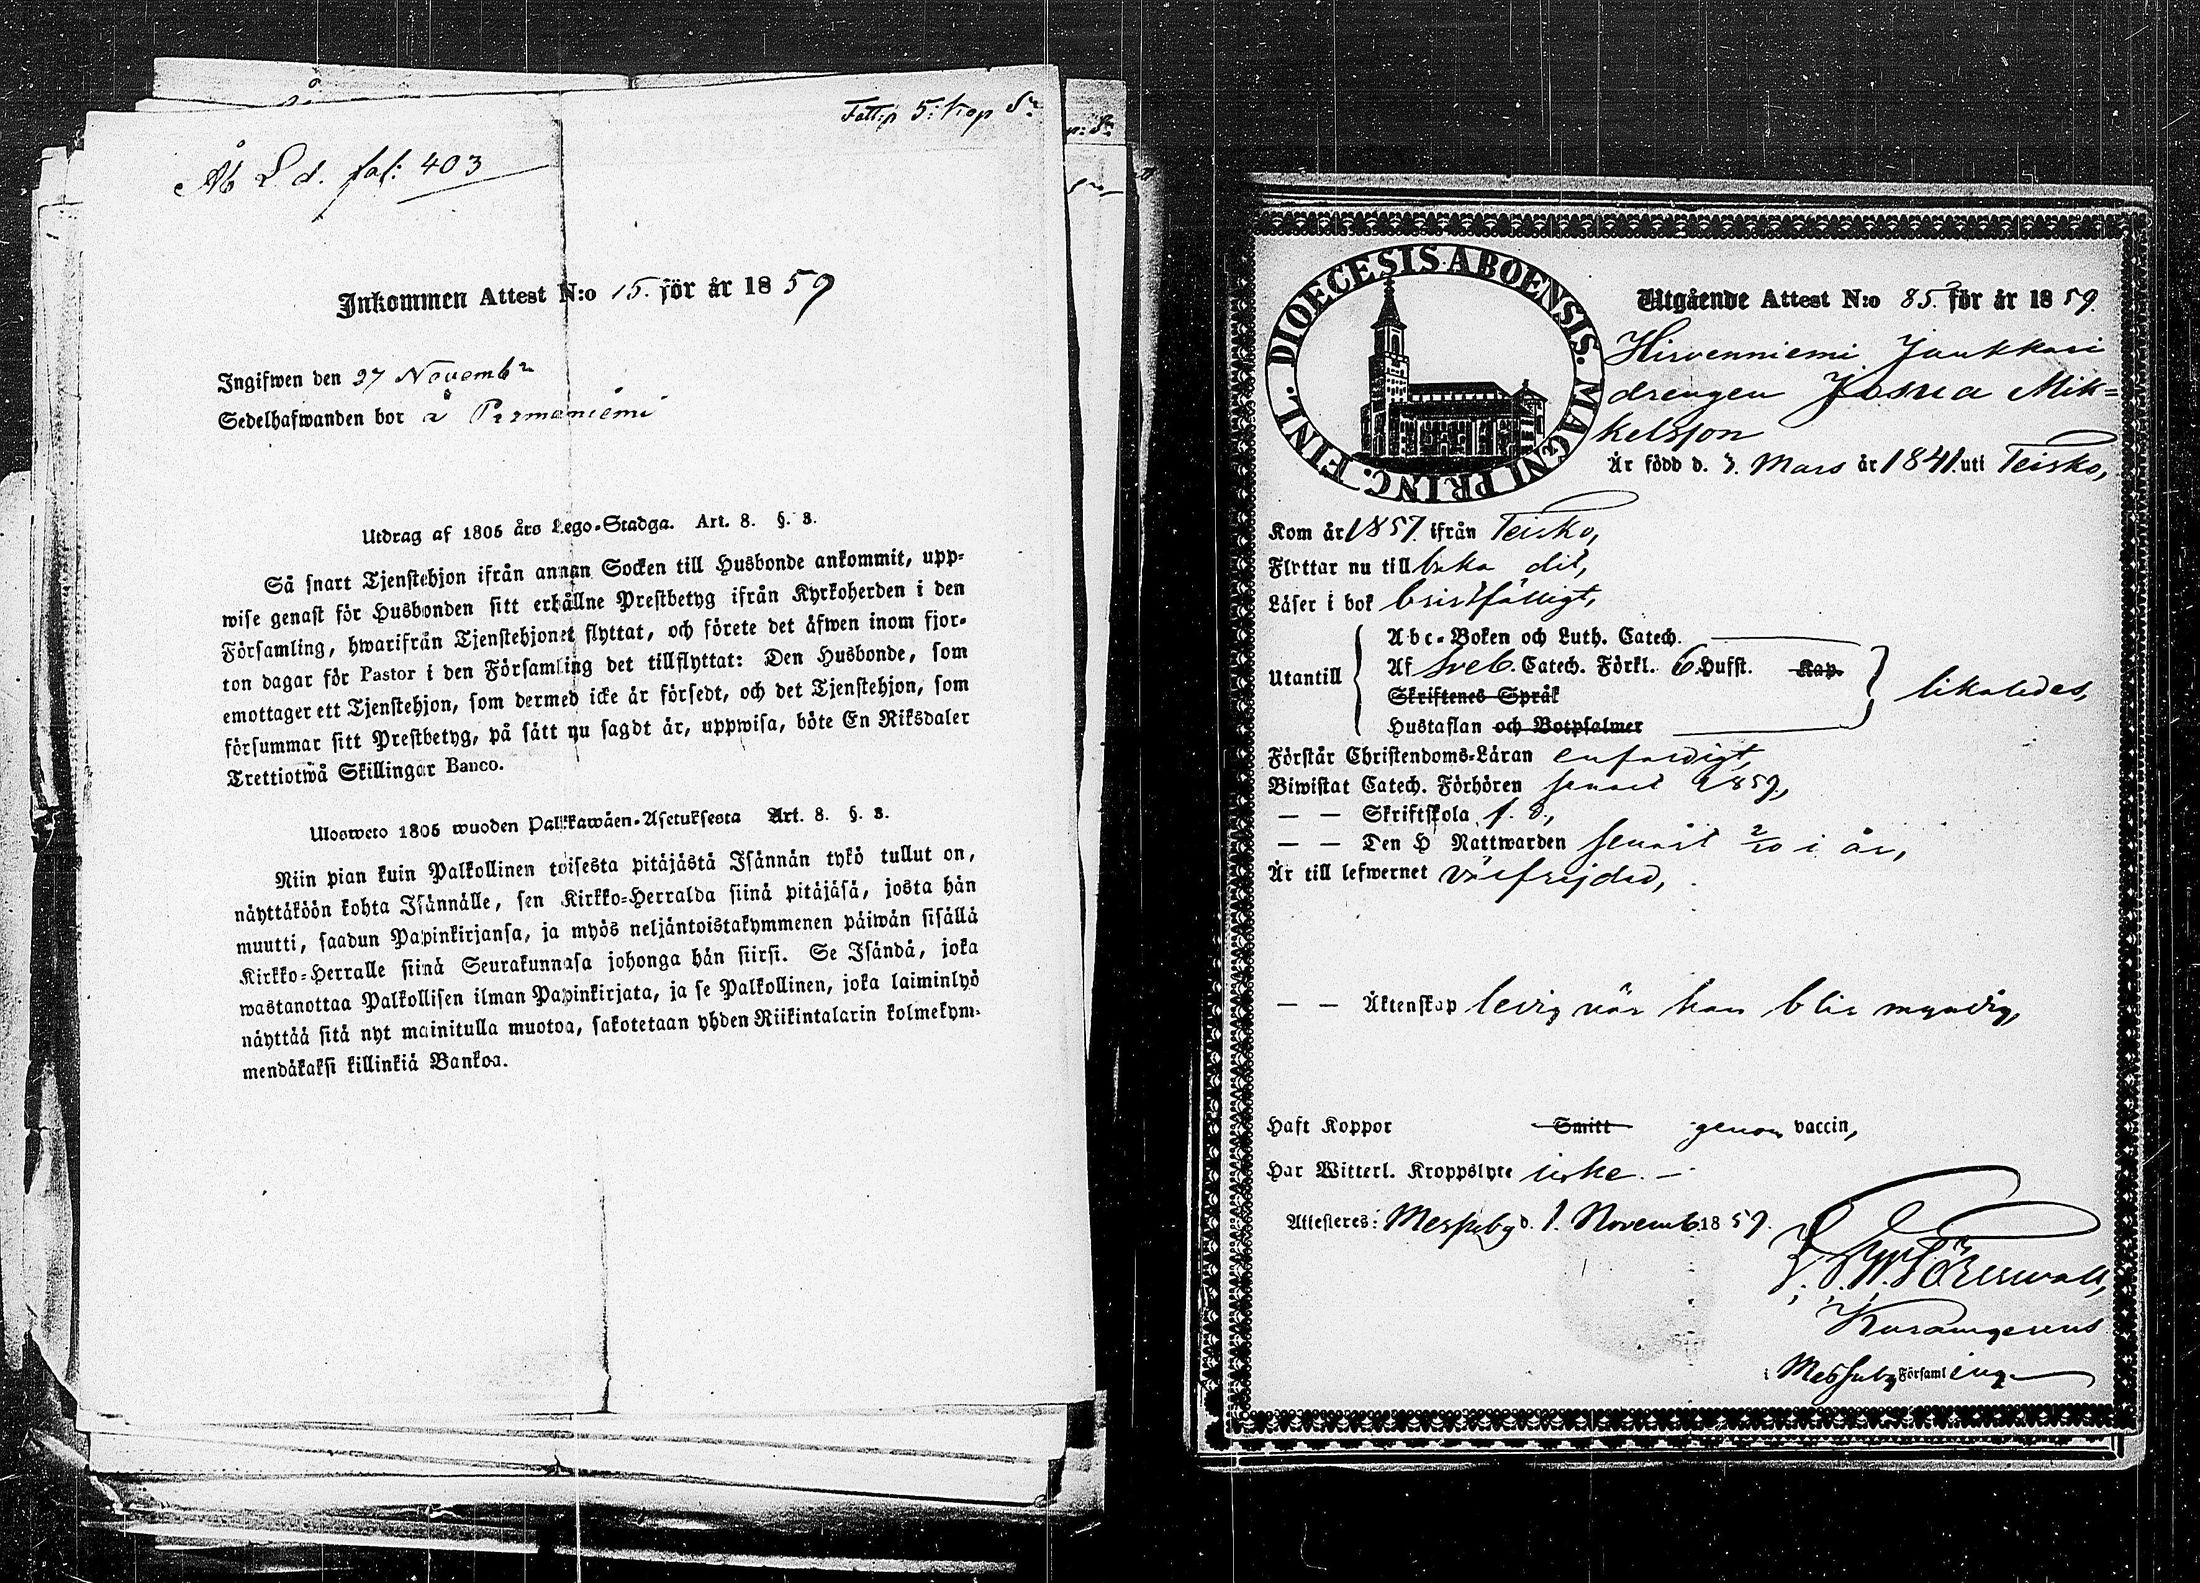 Fattip 5: kop Sr
Åb L. d. fol: 403
Inkommen Attest N:o 15. för år 1859
Ingifwen den 27 Novembr
Sedelhafwanden bor å Permaniemi
Utdrag af 1805 års Lego-Stadga. Art. 8. §. 3.
Så snart Tjenstehjon ifrån annan Socken till Husbonde ankommit, upp-
wise genast för Husbonden sitt erhållne Prestbetyg ifrån Kyrkoherden i den
Församling, hwarifrån Tjenstehjonet flyttat, och förete det äfwen inom fjor-
ton dagar för Pastor i den Församling det tillflyttat: Den Husbonde, som
emottager ett Tjenstehjon, som dermed icke är försedt, och det Tjenstehjon, som
försummar sitt Prestbetyg, på sätt nu sagdt är, uppwisa, böte En Riksdaler
Trettiotwå Skillingar Banco.
Ulosweto 1805 wuoden Palkkawäen-Asetuksesta Art. 8. §. 3.
Niin pian kuin Palkollinen toisesta pitäjästä Isännän tykö tullut on,
näyttäköön kohta Isännälle, sen Kirkko-Herralda siinä pitäjäsä, josta hän
muutti, saadun Papinkirjansa, ja myös neljäntoistakymmenen päiwän sisällä
Kirkko-Herralle siinä Seurakunnasa johonga hän siirsi. Se Isändä, joka
wastanottaa Palkollisen ilman Papinkirjata, ja se Palkollinen, joka laiminlyö
näyttää sitä nyt mainitulla muotoa, sakotetaan yhden Riikintalarin kolmekym-
mendäkaksi killinkiä Bankoa.
DIOECESIS ABOENSIS. MAGNI PRINC. FINL.
Utgående Attest N:o 85. för år 1859.
Hirvenniemi Jaukkari
drengen Josua Mik=
kelsson
År född d. 3. Mars år 1841. uti Teisko,
Kom år 1857. ifrån Teisko,
Flyttar nu tillbaka dit,
Läser i bok bristfälligt,
Abc-Boken och Luth. Catech.
Utantill Af Sveb. Catech. Förkl. 6 Hufst. Kap. likaledes,
Skriftenes Språk
Hustaflan och Botpsalmer
Förstår Christendoms-Läran enfaldigt,
Biwistat Catech. Förhören senast 1859,
— — Skriftskola s. å.,
— — Den H Nattwarden senast 2/10 i år,
Är till lefwernet välfrejdad,
— — Äktenskap ledig när han blir myndig,
Haft Koppor Smitt genom vaccin,
Har Witterl. Kroppslyte icke. —
Attesteres: Messuby d. 1. Novemb. 1859.
i Messuby Församling